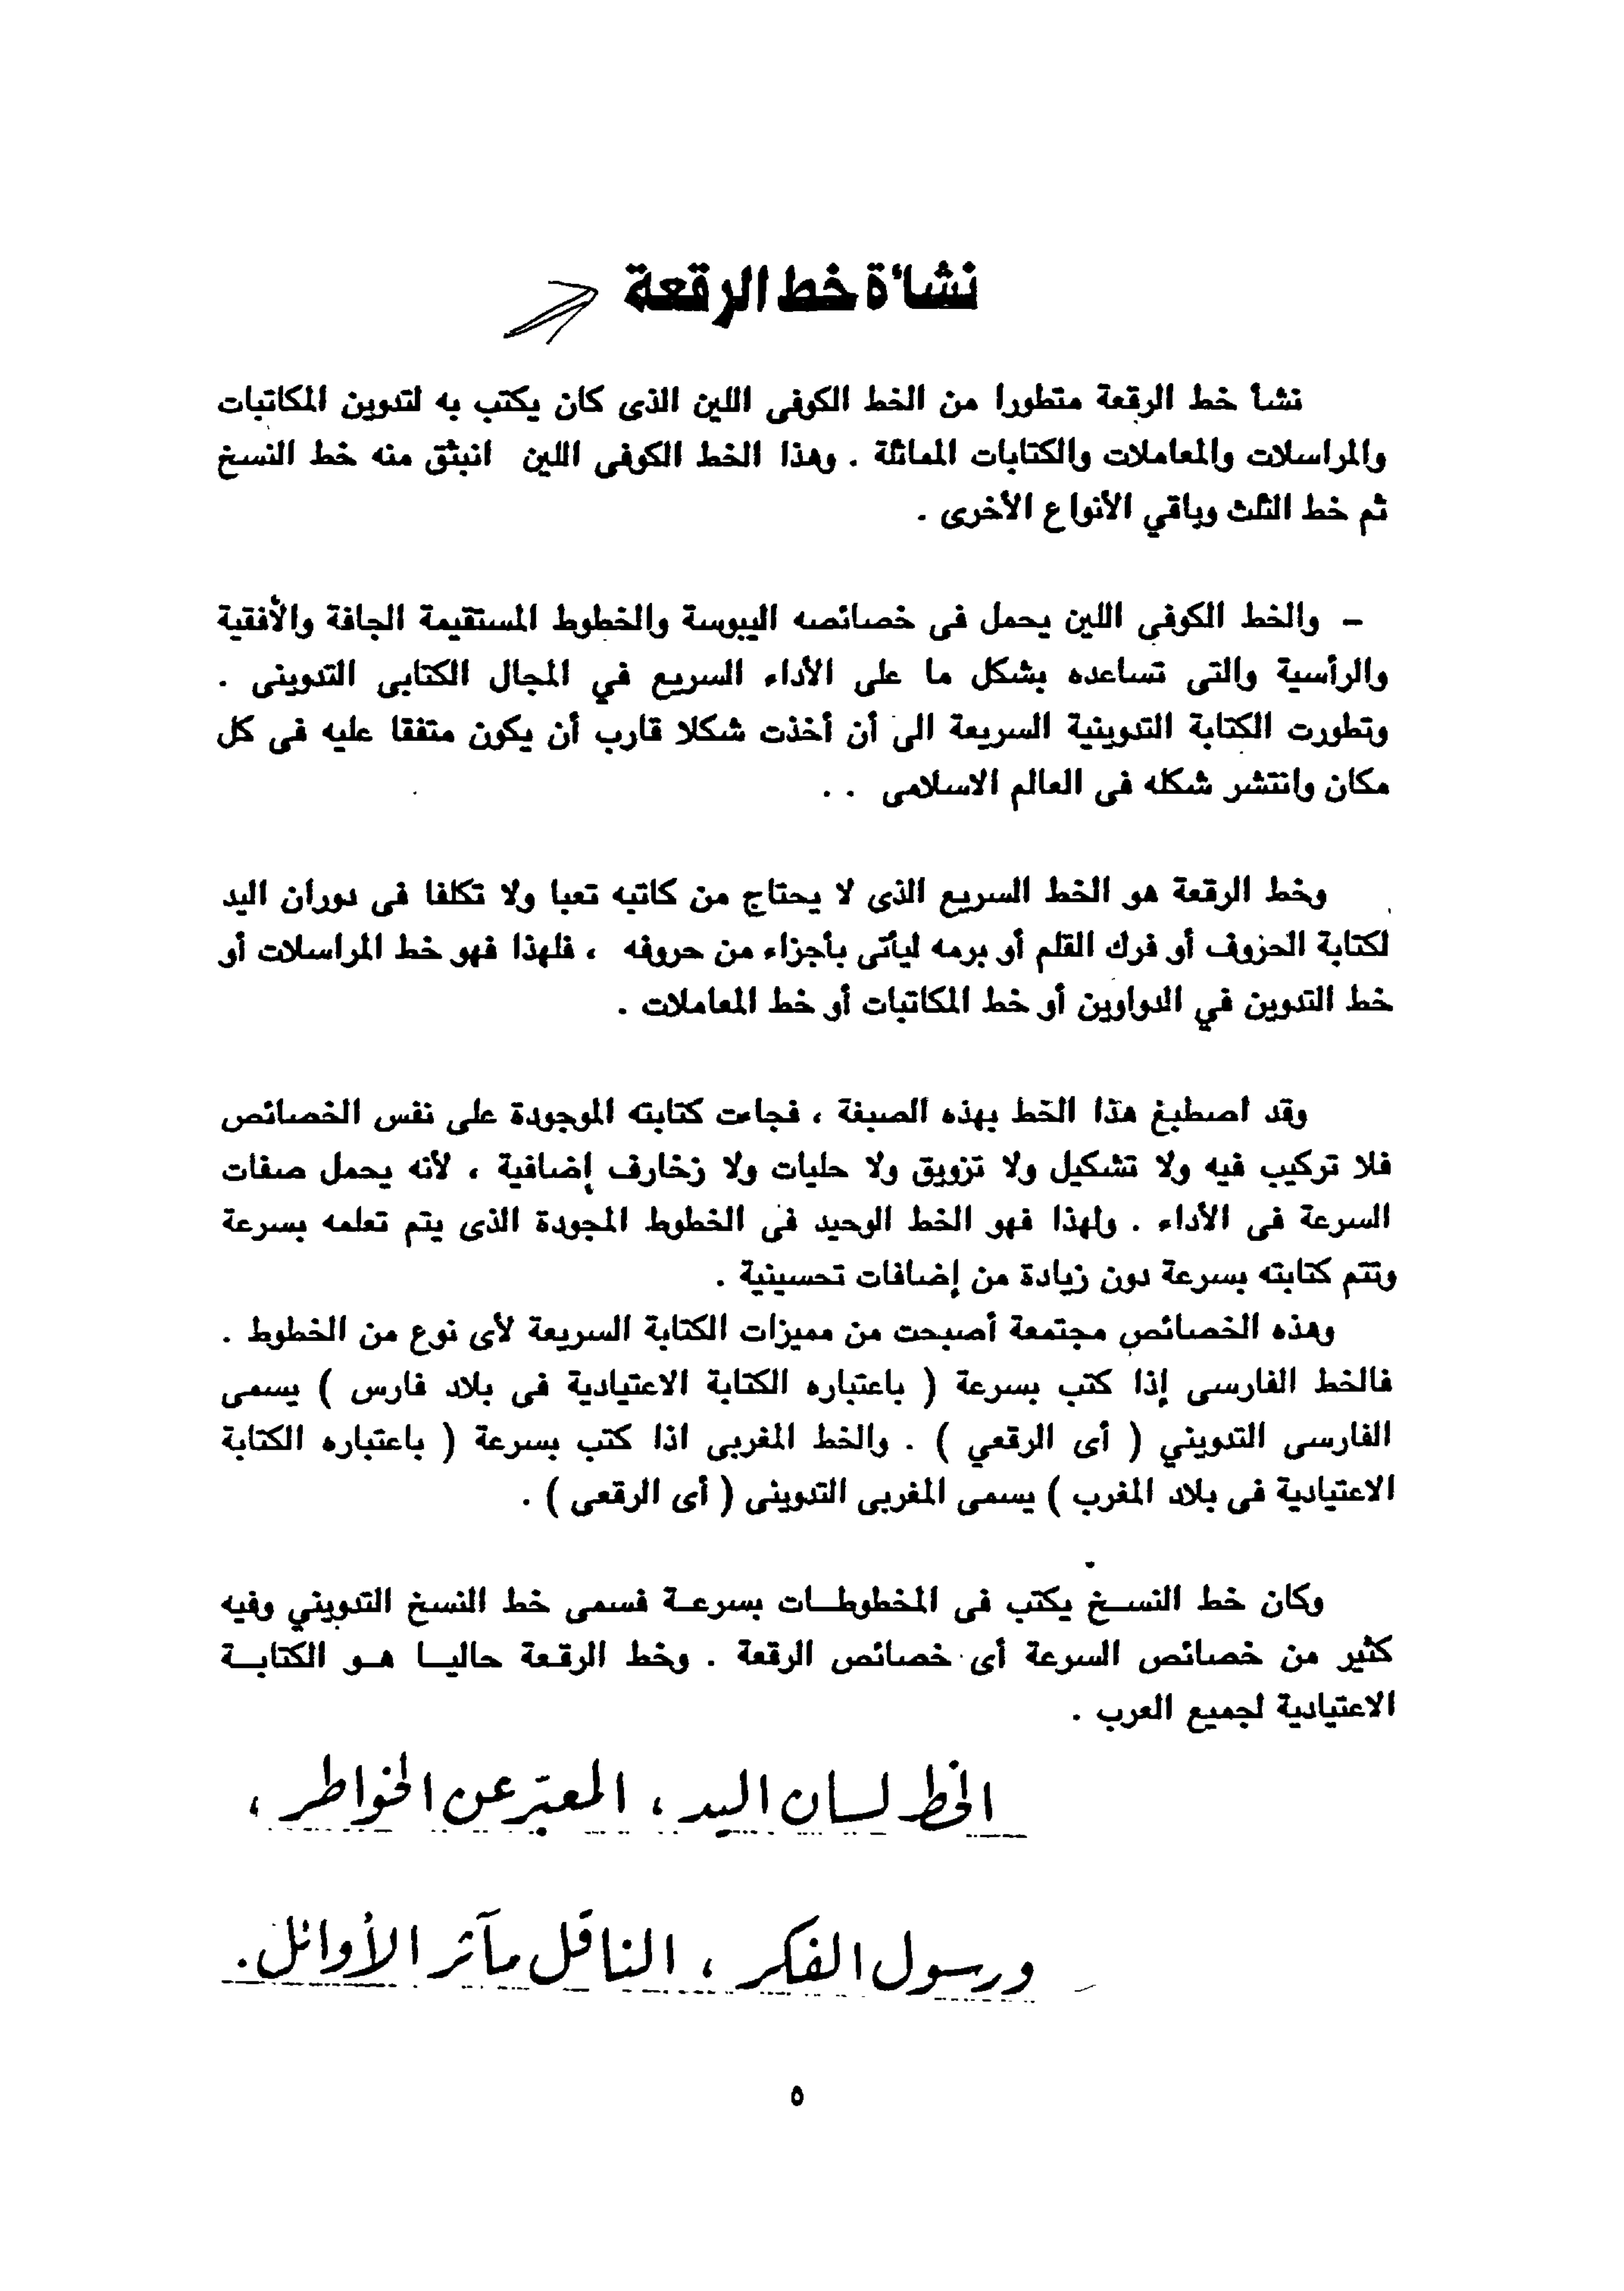 نشأة خط الرقعة
نشأ خط الرقعة متطورا من الخط الكوفى اللين الذى كان يكتب به لتدوين المكاتبات
والمراسلات والمعاملات والكتابات المماثلة . وهذا الخط الكوفى اللين انبثق منه خط النسخ
ثم خط الثلث وباقي الأنواع الأخرى .
– والخط الكوفى اللين يحمل فى خصائصه اليبوسة والخطوط المستقيمة الجافة والأفقية
والرأسية والتى تساعده بشكل ما على الأداء السريع في المجال الكتابى التدوينى .
وتطورت الكتابة التدوينية السريعة الى أن أخذت شكلا قارب أن يكون متفقا عليه فى كل
مكان وانتشر شكله فى العالم الاسلامى . .
وخط الرقعة هو الخط السريع الذى لا يحتاج من كاتبه تعبا ولا تكلفا فى دوران اليد
لكتابة الحروف أو فرك القلم أو برمه ليأتى بأجزاء من حروفه ، فلهذا فهو خط المراسلات أو
خط التدوين في الدواوين أو خط المكاتبات أو خط المعاملات .
وقد اصطبغ هذا الخط بهذه الصبغة ، فجاءت كتابته الموجودة على نفس الخصائص
فلا تركيب فيه ولا تشكيل ولا تزويق ولا حليات ولا زخارف إضافية ، لأنه يحمل صفات
السرعة فى الأداء . ولهذا فهو الخط الوحيد فى الخطوط المجودة الذى يتم تعلمه بسرعة
وتتم كتابته بسرعة دون زيادة من إضافات تحسينية .
وهذه الخصائص مجتمعة أصبحت من مميزات الكتابة السريعة لأى نوع من الخطوط .
فالخط الفارسى إذا كتب بسرعة ( باعتباره الكتابة الاعتيادية فى بلاد فارس ) يسمى
الفارسى التدويني ( أى الرقعي ) . والخط المغربى اذا كتب بسرعة ( باعتباره الكتابة
الاعتيادية فى بلاد المغرب ) يسمى المغربى التدوينى ( أى الرقعى ) .
وكان خط النسـخ يكتب فى المخطوطـات بسرعـة فسمى خط النسخ التدويني وفيه
كثير من خصائص السرعة أى خصائص الرقعة . وخط الرقعة حاليـا هـو الكتابـة
الاعتيادية لجميع العرب .
الخط لسان اليد ، المعبّر عن الخواطر ،
ورسول الفكر ، الناقل مآثر الأوائل .
٥